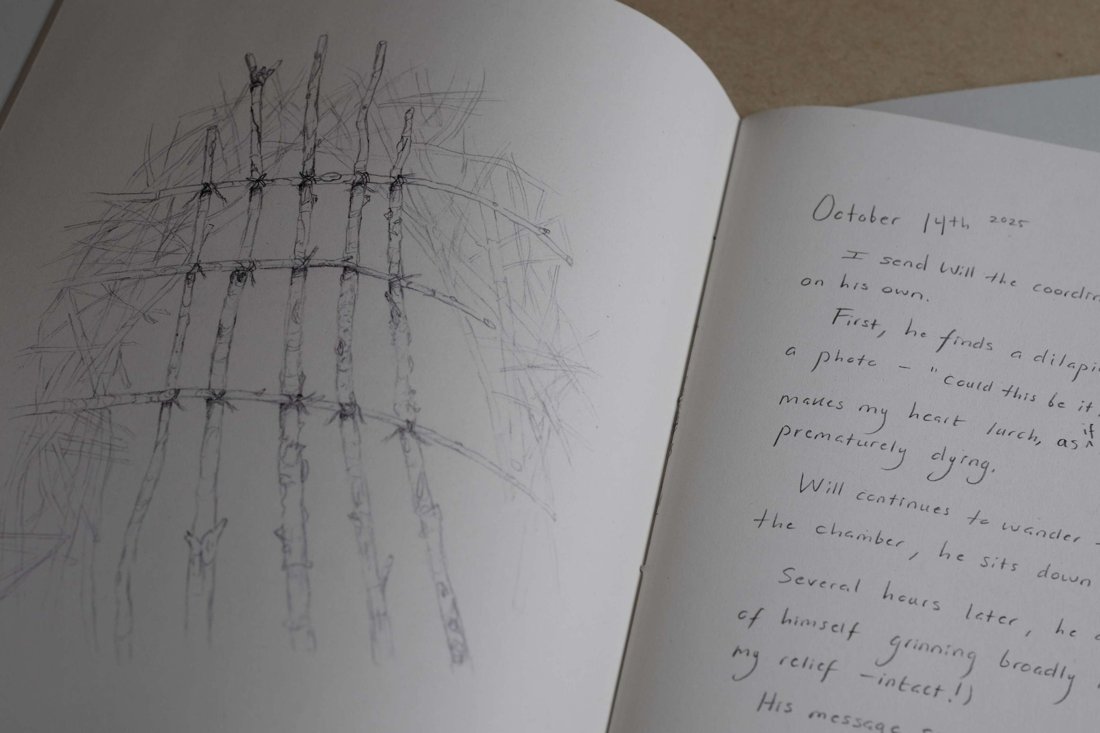 October 14th 2025
I send Will the coordin
on his own.
First, he finds a dilapi
a photo – "Could this be it
makes my heart lurch, as if
prematurely dying.
Will continues to wander –
the chamber, he sits down
Several hours later, he
of himself grinning broadly
my relief – intact!)
His message